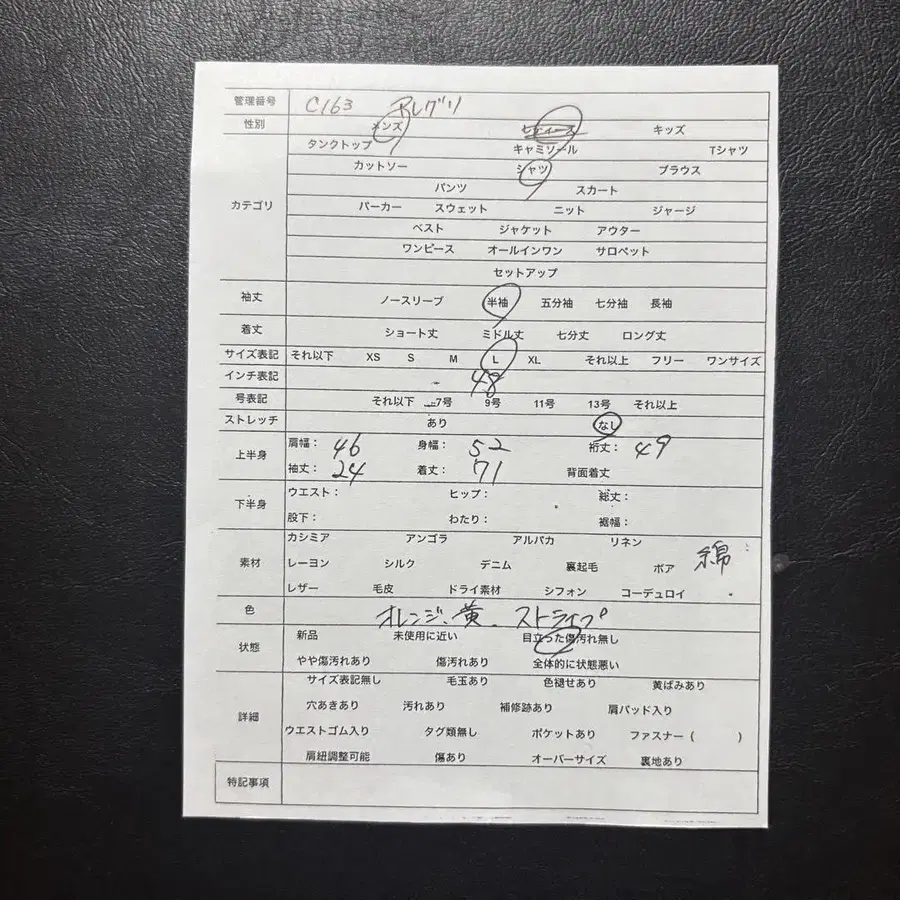 管理番号 C163 アレグリ
性別 メンズ レディース キッズ
タンクトップ キャミソール Tシャツ
カットソー シャツ ブラウス
パンツ スカート
カテゴリ パーカー スウェット ニット ジャージ
ベスト ジャケット アウター
ワンピース オールインワン サロペット
セットアップ
袖丈 ノースリーブ 半袖 五分袖 七分袖 長袖
着丈 ショート丈 ミドル丈 七分丈 ロング丈
サイズ表記 それ以下 XS S M L XL それ以上 フリー ワンサイズ
インチ表記 48
号表記 それ以下 7号 9号 11号 13号 それ以上
ストレッチ あり なし
上半身 肩幅: 46 身幅: 52 裄丈: 49
袖丈: 24 着丈: 71 背面着丈
下半身 ウエスト: ヒップ: 総丈:
股下: わたり: 裾幅:
カシミア アンゴラ アルパカ リネン
素材 レーヨン シルク デニム 裏起毛 ボア 綿
レザー 毛皮 ドライ素材 シフォン コーデュロイ
色 オレンジ、黄、ストライプ
状態 新品 未使用に近い 目立った傷汚れ無し
やや傷汚れあり 傷汚れあり 全体的に状態悪い
サイズ表記無し 毛玉あり 色褪せあり 黄ばみあり
詳細 穴あきあり 汚れあり 補修跡あり 肩パッド入り
ウエストゴム入り タグ類無し ポケットあり ファスナー ( )
肩紐調整可能 傷あり オーバーサイズ 裏地あり
特記事項